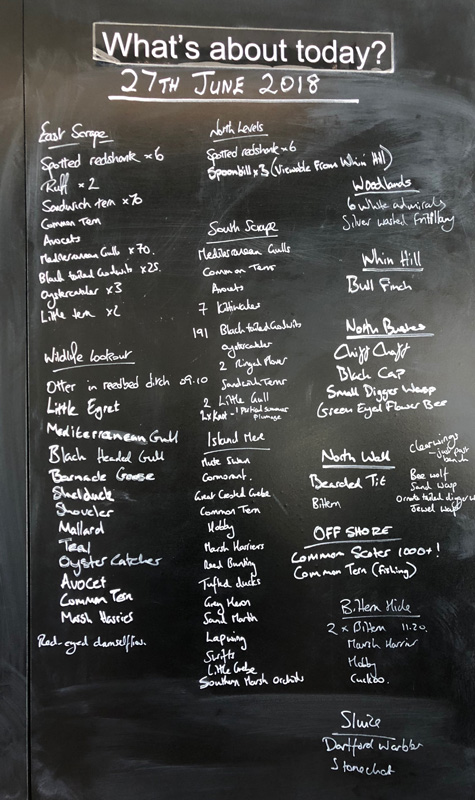 What's about today?
27TH JUNE 2018
East Scrape
Spotted redshank x6
Ruff x 2
Sandwich tern x70
Common Tern
Avocets
Mediterranean Gulls x 70.
Black tailed Godwits x25.
Oystercatcher x3
Little tern x2
Wildlife Lookout
Otter in reedbed ditch 09.10
Little Egret
Mediterranean Gull
Black Headed Gull
Barnacle Goose
Shelduck
Shoveler
Mallard
Teal
Oyster Catcher
Avocet
Common Tern
Marsh Harrier
Red-eyed damselflies
North Levels
Spotted redshank x6
Spoonbill x3 (Viewable From Whin Hill)
South Scrape
Mediterranean Gulls
Common Terns
Avocets
7 Kittiwakes
191 Black tailed Godwits
Oystercatcher
2 Ringed Plover
Sandwich Terns
2 Little Gull
2 x Knot - 1 Partial summer
plumage
Island Mere
Mute Swan
Cormorant.
Great Crested Grebe
Common Tern
Hobby
Marsh Harriers
Reed Bunting
Tufted ducks
Grey Heron
Sand Martin
Lapwing
Swifts
Little Grebe
Southern Marsh orchids
Woodlands
6 White admirals
Silver washed Fritillary
Whin Hill
Bull Finch
North Bushes
Chiff Chaff
Black Cap
Small Digger Wasp
Green Eyed Flower Bee
North Wall
Bearded Tit
Bittern
clearwings
- just past
bench
Bee wolf
Sand wasp
Ornate tailed digger w
Jewel wasp
OFF SHORE
Common Scoter 1000+!
Common Tern (fishing)
Bittern Hide
2 x Bittern 11.20.
Marsh Harrier
Hobby
Cuckoo.
Sluice
Dartford Warbler
Stonechat